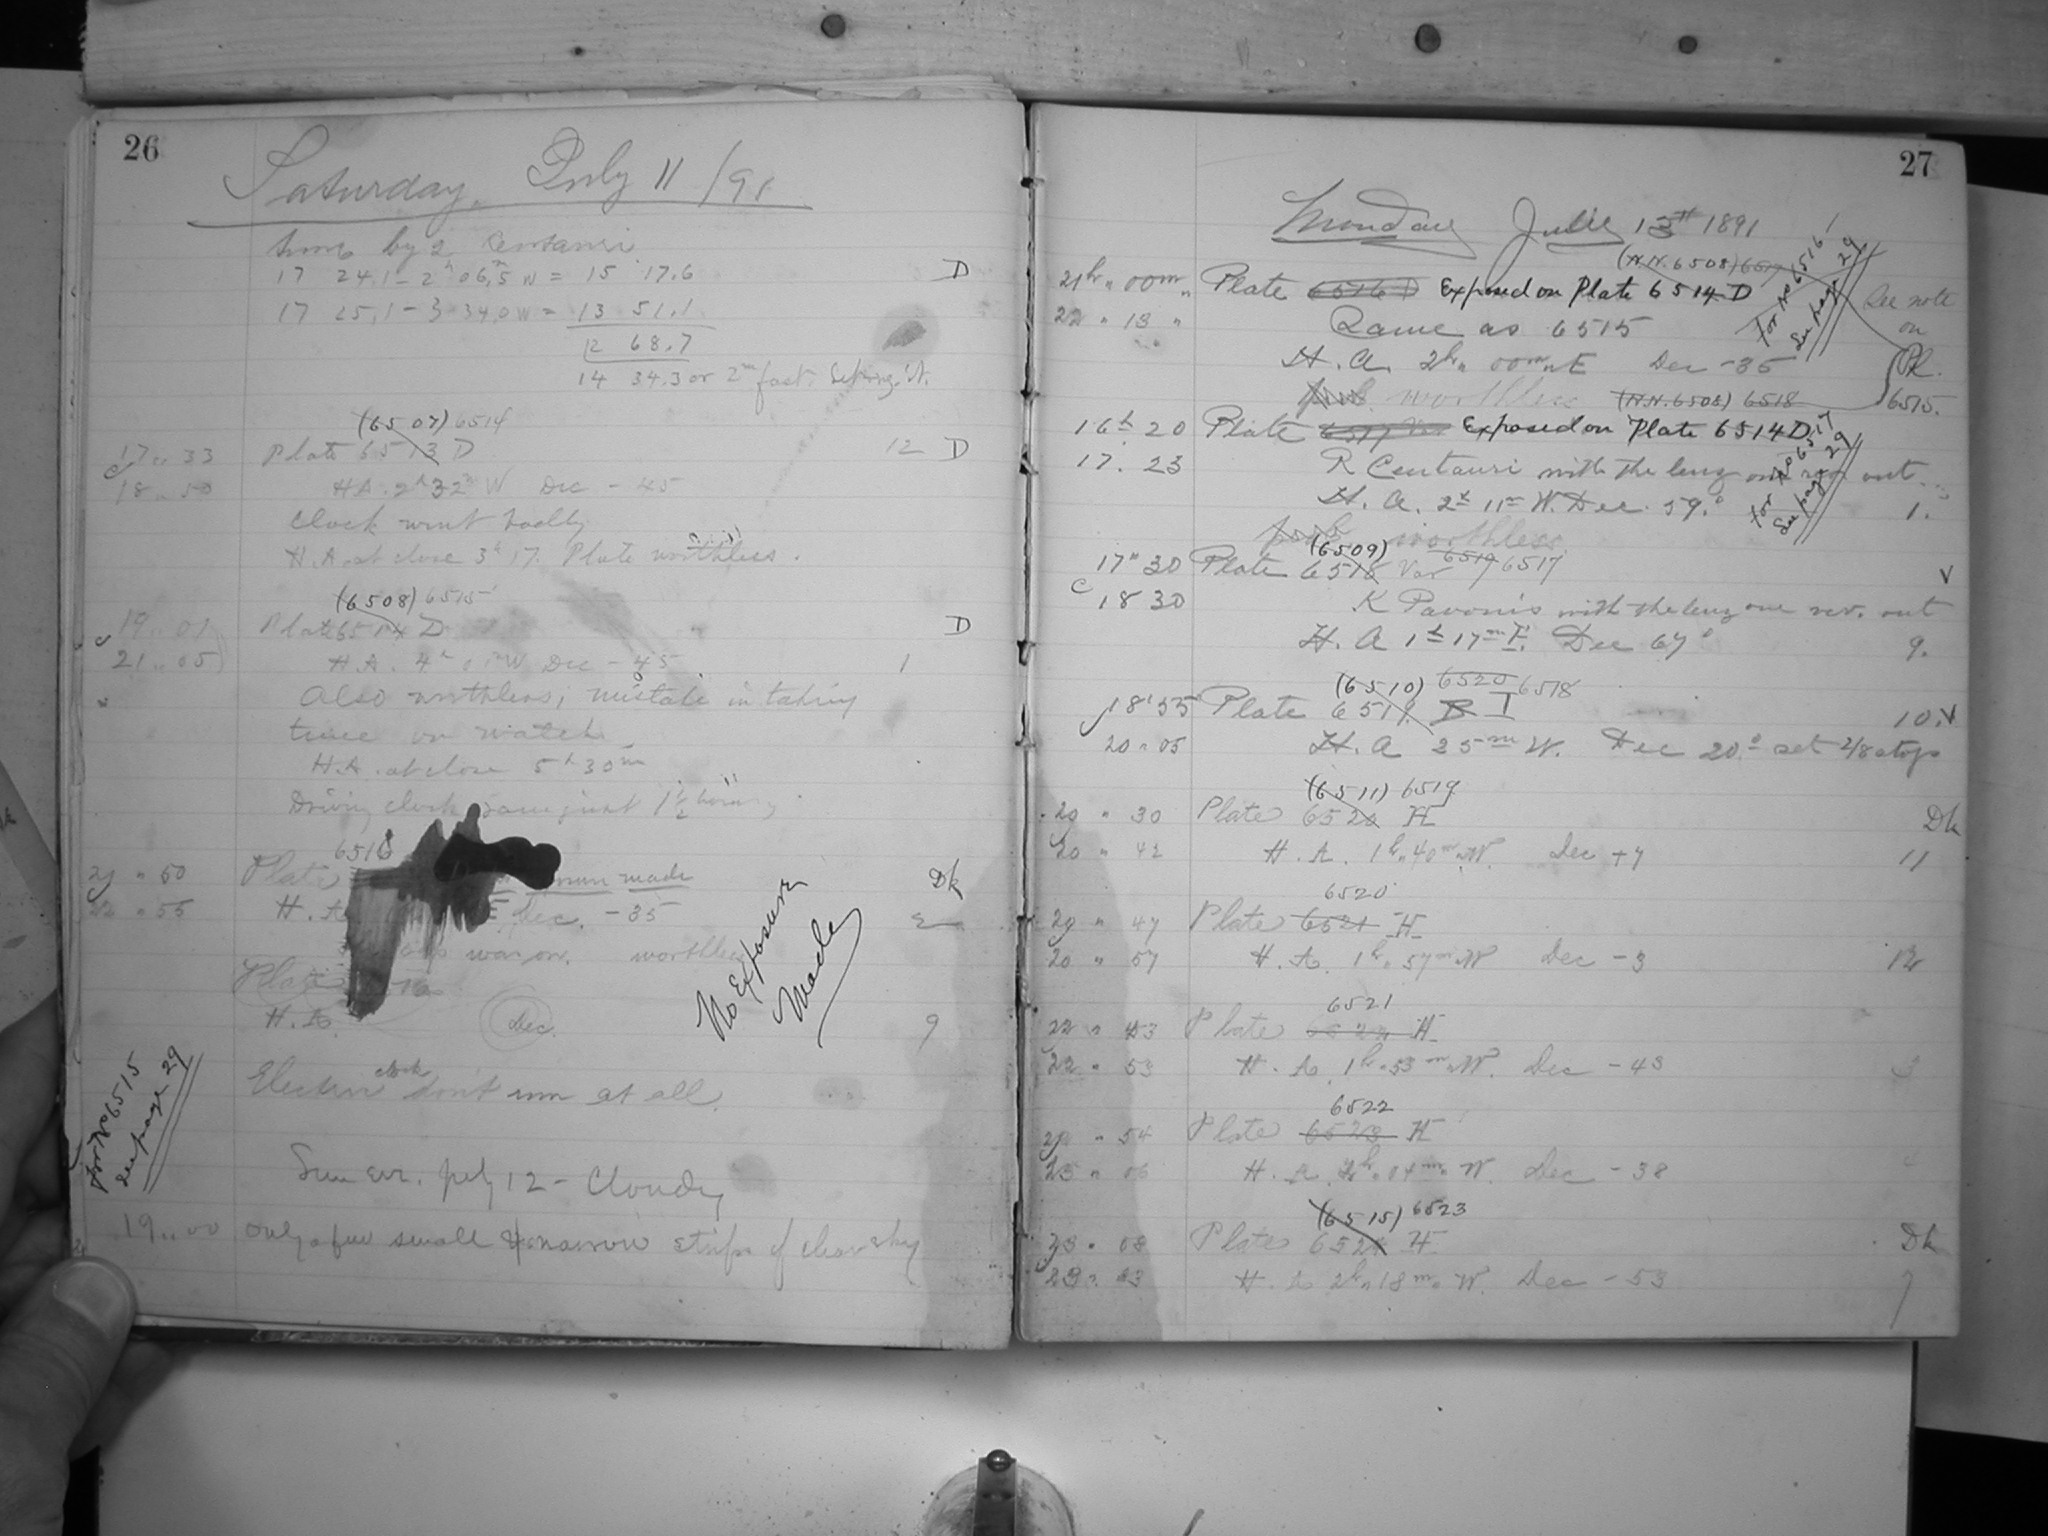 26
Saturday, July 11/91
time by 2 Centauri
17 24.1 - 2h 06.5 W = 15 17.6
D
17 25.1 - 3 34.0 W = 13 51.1
12 68.7
14 34.3 or 2m fast.
(6507) 6514
17 .. 33 Plate 6513 D 12 D
18 .. 50 H.A. 2h 32m W Dec - 45
Clock went badly
H.A. at close 3h 17. Plate worthless.
(6508) 6515
19 .. 01 Plate 6514 D D
21 .. 05 H.A. 4h W Dec - 45 1
Also worthless; mistake in taking
time on watch
H.A. at close 5h 30m
Driving clock just 1 1/2
6516
" 50 Plate made Dk
22 " 55 H.A. E Dec. - 35 2
was on. worthless
Plate
H.A. Dec. 9
No Exposure
Made
Electric clock don't run at all.
For No 6515
See page 29
Sun evr. July 12 - Cloudy
19 .. 00 only a few small & narrow strips of clear sky
27
Monday July 13th 1891
(H.N. 6508) 6517
21hr " 00m " Plate 6516 D Exposed on Plate 6514 D
22 " 13 " Same as 6515
H.A. 2hr " 00m " E Dec - 35
For No 6516
See page 29
See note
on
Pl.
6515.
worthless (H.N. 6508) 6518
16h 20 Plate 6517 Var Exposed on Plate 6514 D.
17. 23 R Centauri with the lenz one rev. out.
H.A. 2h 11m W. Dec. 59.° 1.
For No 6517
See page 29
worthless
(6509) 6519 6517
17h 30 Plate 6518 Var V
18 30 K Pavonis with the lenz one rev. out
H.A 1h 17m E. Dec 67° 9.
(6510) 6520 6518
18h 55 Plate 6519 B I 10.V
20 " 05 H.A 25m W. Dec 20° set 2/8 stops
(6511) 6519
20 " 30 Plate 6520 H Dk
20 " 42 H.A. 1h " 40m " W. Dec + 7 11
6520
20 " 47 Plate 6521 H
20 " 57 H.A. 1h " 57m " W Dec - 3 12
6521
22 " 43 Plate 6522 H
22 " 53 H.A. 1h " 53m " W. Dec - 43 3
6522
" 54 Plate 6523 H
23 " 06 H.A. 2h " 04m " W. Dec - 38 4
(6515) 6523
23 " 08 Plate 6524 H Dk
23 " 23 H.A 2h " 18m " W. Dec - 53 7